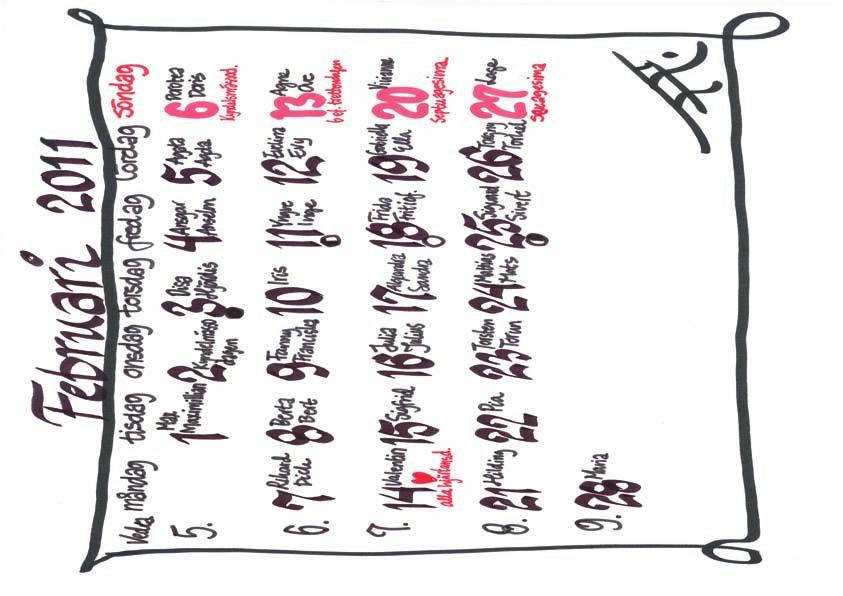 Februari 2011
Vecka måndag tisdag onsdag torsdag fredag lördag söndag
5.
1 Max Maximilian
2 Kyndelmässodagen
3 Disa Hjördis
4 Ansgar Anselm
5 Agata Agda
6 Dorotea Doris
Kyndelsmässod.
6.
7 Rikard Dick
8 Berta Bert
9 Fanny Franciska
10 Iris
11 Yngve Inge
12 Evelina Evy
13 Agne Ove
6 e f. trettondagen
7.
14 Valentin
alla hjärtansd.
15 Sigfrid
16 Julia Julius
17 Alexandra Sandra
18 Frida Fritiof.
19 Gabriella Ella
20 Vivianne
Septuagesima
8.
21 Hilding
22 Pia
23 Torsten Torun
24 Mattias Mats
25 Sigvard Sivert
26 Torgny Torkel
27 Lage
sexagesima
9.
28 Maria